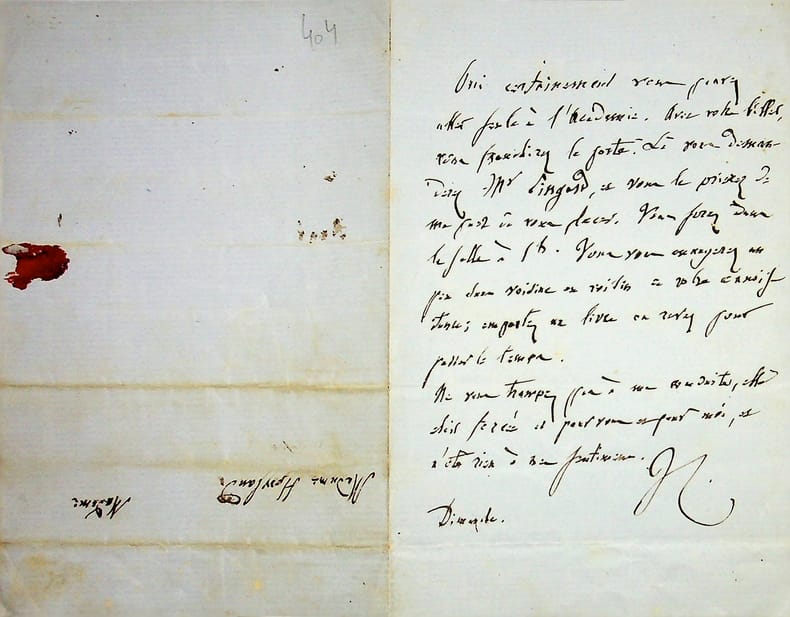 404
Oui certainement vous pouvez
aller seule à l'Académie. Avec votre billet,
vous franchirez la porte. Là vous deman-
derez Mr Pingard, et vous le prierez de
ma part de vous placer. Vous serez dans
la salle à 1h. Vous vous ennuyerez un
peu sans voisine ou voisin de votre connais-
sance; emportez un livre ou revue pour
passer le temps.
Ne vous trompez pas à ma conduite, elle
était forcée et pour vous et pour moi, et
n'ôte rien à mes sentimens.
Dimanche.
Madame
Madame